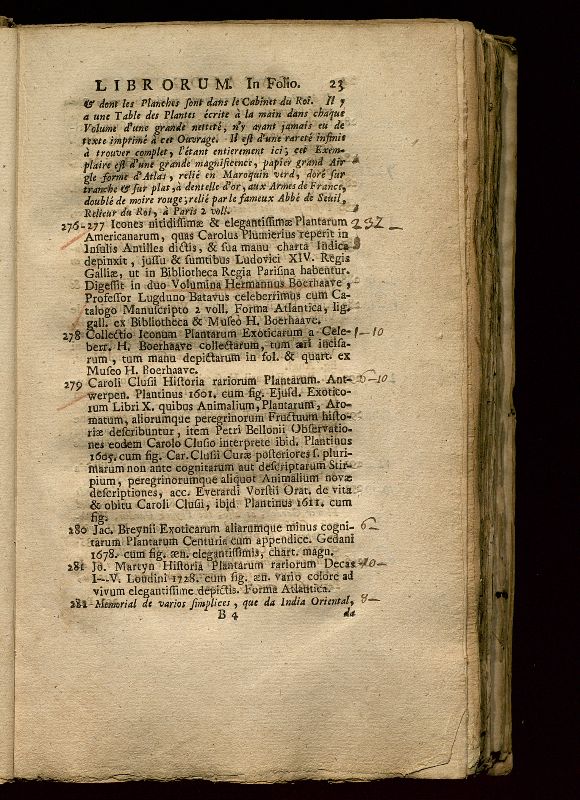 LIBRORUM. In Folio. 23
& dont les Planches sont dans le Cabinet du Roi. Il y
a une Table des Plantes écrite à la main dans chaque
Volume d'une grande netteté, n'y ayant jamais eu de
texte imprimé à cet Ouvrage. Il est d'une rareté infinie
à trouver complet, l'étant entierement ici; cet Exem-
plaire est d'une grande magnificence, papier grand Air
gle forme d'Atlas, relié en Maroquin verd, doré sur
tranche & sur plat, à dentelle d'or, aux Armes de France,
doublé de moire rouge; relié par le fameux Abbé de Seuil,
Relieur du Roi, à Paris 2 voll.
276-277 Icones nitidissimæ & elegantissimæ Plantarum 232 —
Americanarum, quas Carolus Plumierius reperit in
Insulis Antilles dictis, & sua manu charta Indica
depinxit, jussu & sumtibus Ludovici XIV. Regis
Galliæ, ut in Bibliotheca Regia Parisina habentur.
Digessit in duo Volumina Hermannus Boerhaave,
Professor Lugduno Batavus celeberrimus cum Ca-
talogo Manuscripto 2 voll. Forma Atlantica, lig.
gall. ex Bibliotheca & Museo H. Boerhaave.
278 Collectio Iconum Plantarum Exoticarum a Cele- 1-10
berr. H. Boerhaave collectarum, tum æri incisa-
rum, tum manu depictarum in fol. & quart. ex
Museo H. Boerhaave.
279 Caroli Clusii Historia rariorum Plantarum. Ant- 6-10
werpen. Plantinus 1601. cum fig. Ejusd. Exotico-
rum Libri X. quibus Animalium, Plantarum, Aro-
matum, aliorumque peregrinorum Fructuum histo-
riæ describuntur, item Petri Bellonii Observatio-
nes eodem Carolo Clusio interprete ibid. Plantinus
1605. cum fig. Car. Clusii Curæ posteriores s. pluri-
marum non ante cognitarum aut descriptarum Stir-
pium, peregrinorumque aliquot Animalium novæ
descriptiones, acc. Everardi Vorstii Orat. de vita
& obitu Caroli Clusii, ibid. Plantinus 1611. cum
fig.
280 Jac. Breynii Exoticarum aliarumque minus cogni- 6 —
tarum Plantarum Centuria cum appendice. Gedani
1678. cum fig. æn. elegantissimis, chart. magn.
281 Jo. Martyn Historia Plantarum rariorum Decas 10 —
I--V. Londini 1728. cum fig. æn. vario colore ad
vivum elegantissime depictis. Forma Atlantica.
282 Memorial de varios simplices, que da India Oriental, 8 —
B 4 da